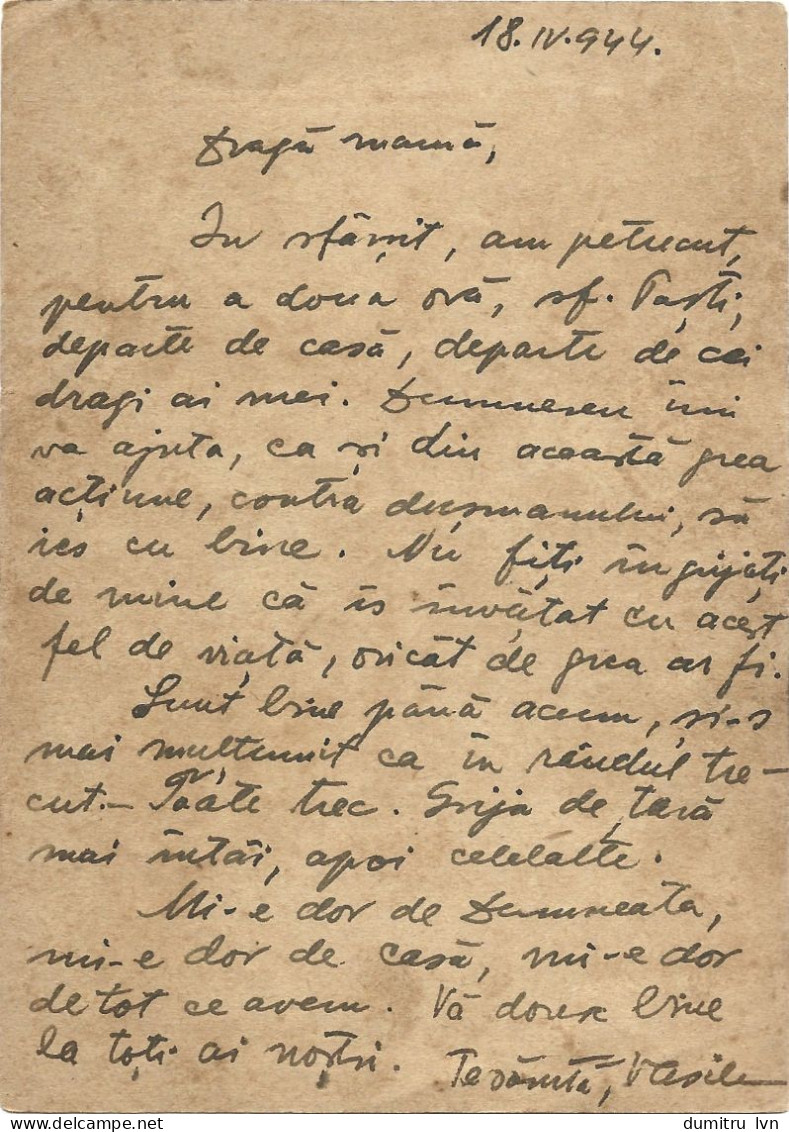 18.IV.944.
Dragă mamă,
In sfârșit, am petrecut,
pentru a doua oră, sf. Paști,
departe de casă, departe de cei
dragi ai mei. Dumnezeu îmi
va ajuta, ca și din această grea
acțiune, contra dușmanului, să
ies cu bine. Nu fiți îngrijați
de mine că îs învățat cu acest
fel de viață, oricât de grea ar fi.
Sunt bine până acum, și-s
mai mulțumit ca în rândul tre-
cut.- Toate trec. Grija de țară
mai întâi, apoi celelalte.
Mi-e dor de Dumneata,
mi-e dor de casă, mi-e dor
de tot ce avem. Vă doresc bine
la toți ai noștri. Te sărută, Vasile
dumitru lvn